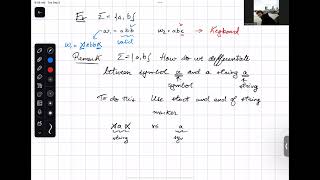 Ex Σ = {a, b}
w₁ = abb w₂ = abc → Keyboard
valid
Remark Σ = {a, b} How do we differentiate
between symbol a and a string a
symbol string
To do this Use start and end of string
marker
a vs a
string sym